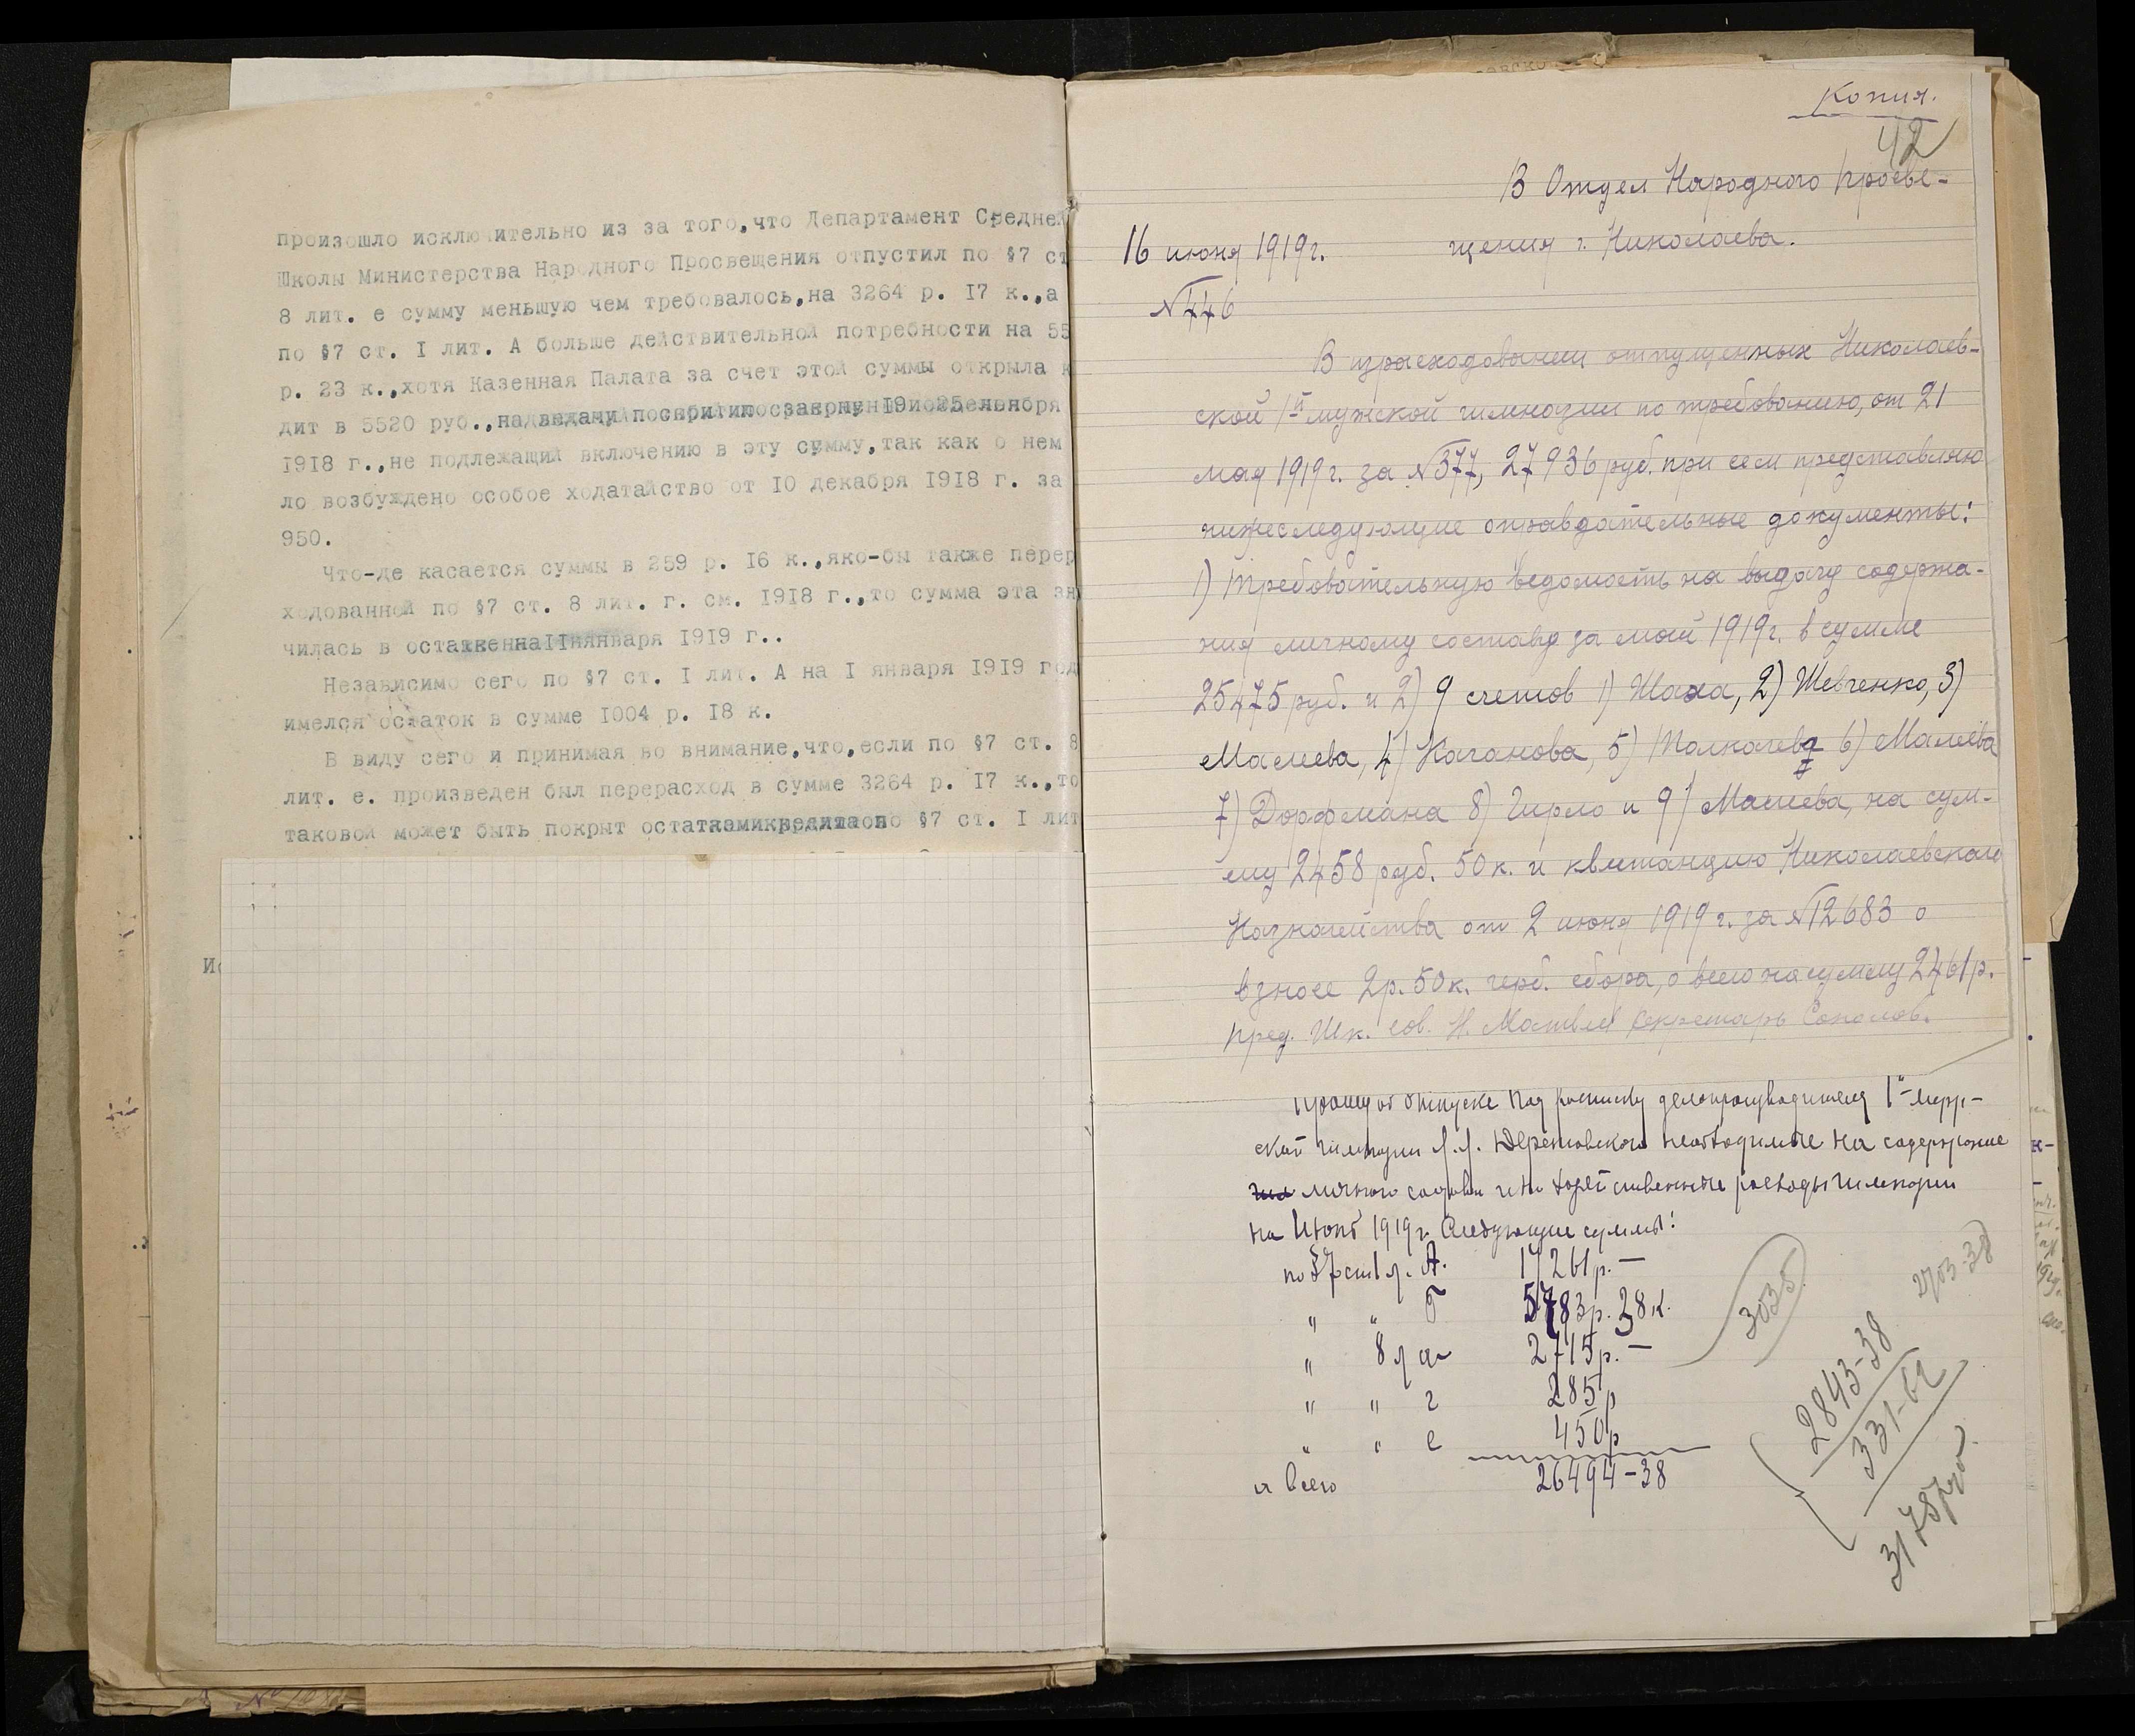 произошло исключительно из за того,что Департамент Средней
Школы Министерства Народного Просвещения отпустил по §7 ст
8 лит. е сумму меньшую чем требовалось,на 3264 р. I7 к.,а
по §7 ст. I лит. А больше действительной потребности на 55
р. 23 к.,хотя Казенная Палата за счет этой суммы открыла к
дит в 5520 руб.,
I9I8 г.,не подлежащий включению в эту сумму,так как о нем
ло возбуждено особое ходатайство от IO декабря I9I8 г. за
950.
Что-де касается суммы в 259 р. I6 к.,яко-бы также перер
ходованной по §7 ст. 8 лит. г. см. I9I8 г.,то сумма эта зн
чилась в остатке на I января I9I9 г..
Независимо сего по §7 ст. I лит. А на I января I9I9 год
имелся остаток в сумме I004 р. I8 к.
В виду сего и принимая во внимание,что,если по §7 ст. 8
лит. е. произведен был перерасход в сумме 3264 р. I7 к.,то
таковой может быть покрыт остатками кредита по §7 ст. I лит
Ис
Копия.
42
В Отдел Народного Просве-
16 июня 1919г. щения г. Николаева.
№ 446
В израсходовании отпущенных Николаев-
ской 1й мужской гимназии по требованию, от 21
мая 1919 г. за №377, 27936 руб. при сем представляю
нижеследующие оправдательные документы:
1) Требовательную ведомость на выдачу содержа-
ния личному составу за май 1919г. в сумме
25475 руб. и 2) 9 счетов 1) Шаха, 2) Шевченко, 3)
Малеева, 4) Каганова, 5) Толкачева 6) Малеева
7) Дорфмана 8) Чирло и 9) Малеева, на сум-
му 2458 руб. 50 к. и квитанцию Николаевскаго
Казначейства от 2 июня 1919 г. за №12683 о
взносе 2р. 50к. герб. сбора, а всего на сумму 2461р.
Пред. Шк. Сов. Н. Матвеев Секретарь Соколов.
Прошу об отпуске под расписку делопроизводителя 1й муж-
ской гимназии необходимые на содержание
личного состава и на хозяйственные расходы гимназии
на Июнь 1919 г. следующие суммы:
по §7 ст 1 л. А. 17261р. —
" " Б 5783р. 38к.
" 8 л а 2715р. —
" " г 285р
" " е 450р
а всего 26494-38
3035
2703-38
2843-38
331-62
3175 руб.